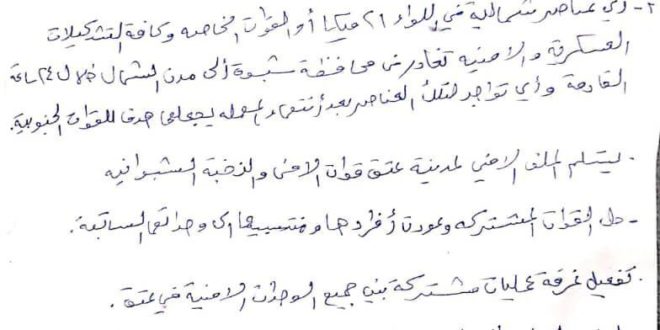 ٢- أي عناصر شمالية في اللواء ٢١ ميكا أو القوات الخاصه وكافة التشكيلات
العسكرية والامنيه تغادر من محافظة شبوة إلى مدن الشمال خلال ٢٤ ساعة
القادمة وأي تواجد لتلك العناصر بعد أنتهاء المهله يجعلهم هدف للقوات الجنوبية.
. يستلم الملف الامني لمدينة عتق قوات الامن والنخبة الشبوانيه
- حل القوات المشتركه وعودة أفردها ومنتسبيها الى وحداتهم السابقة.
. تفعيل غرفة عمليات مشتركة بين جميع الوحدات الامنية في عتق.